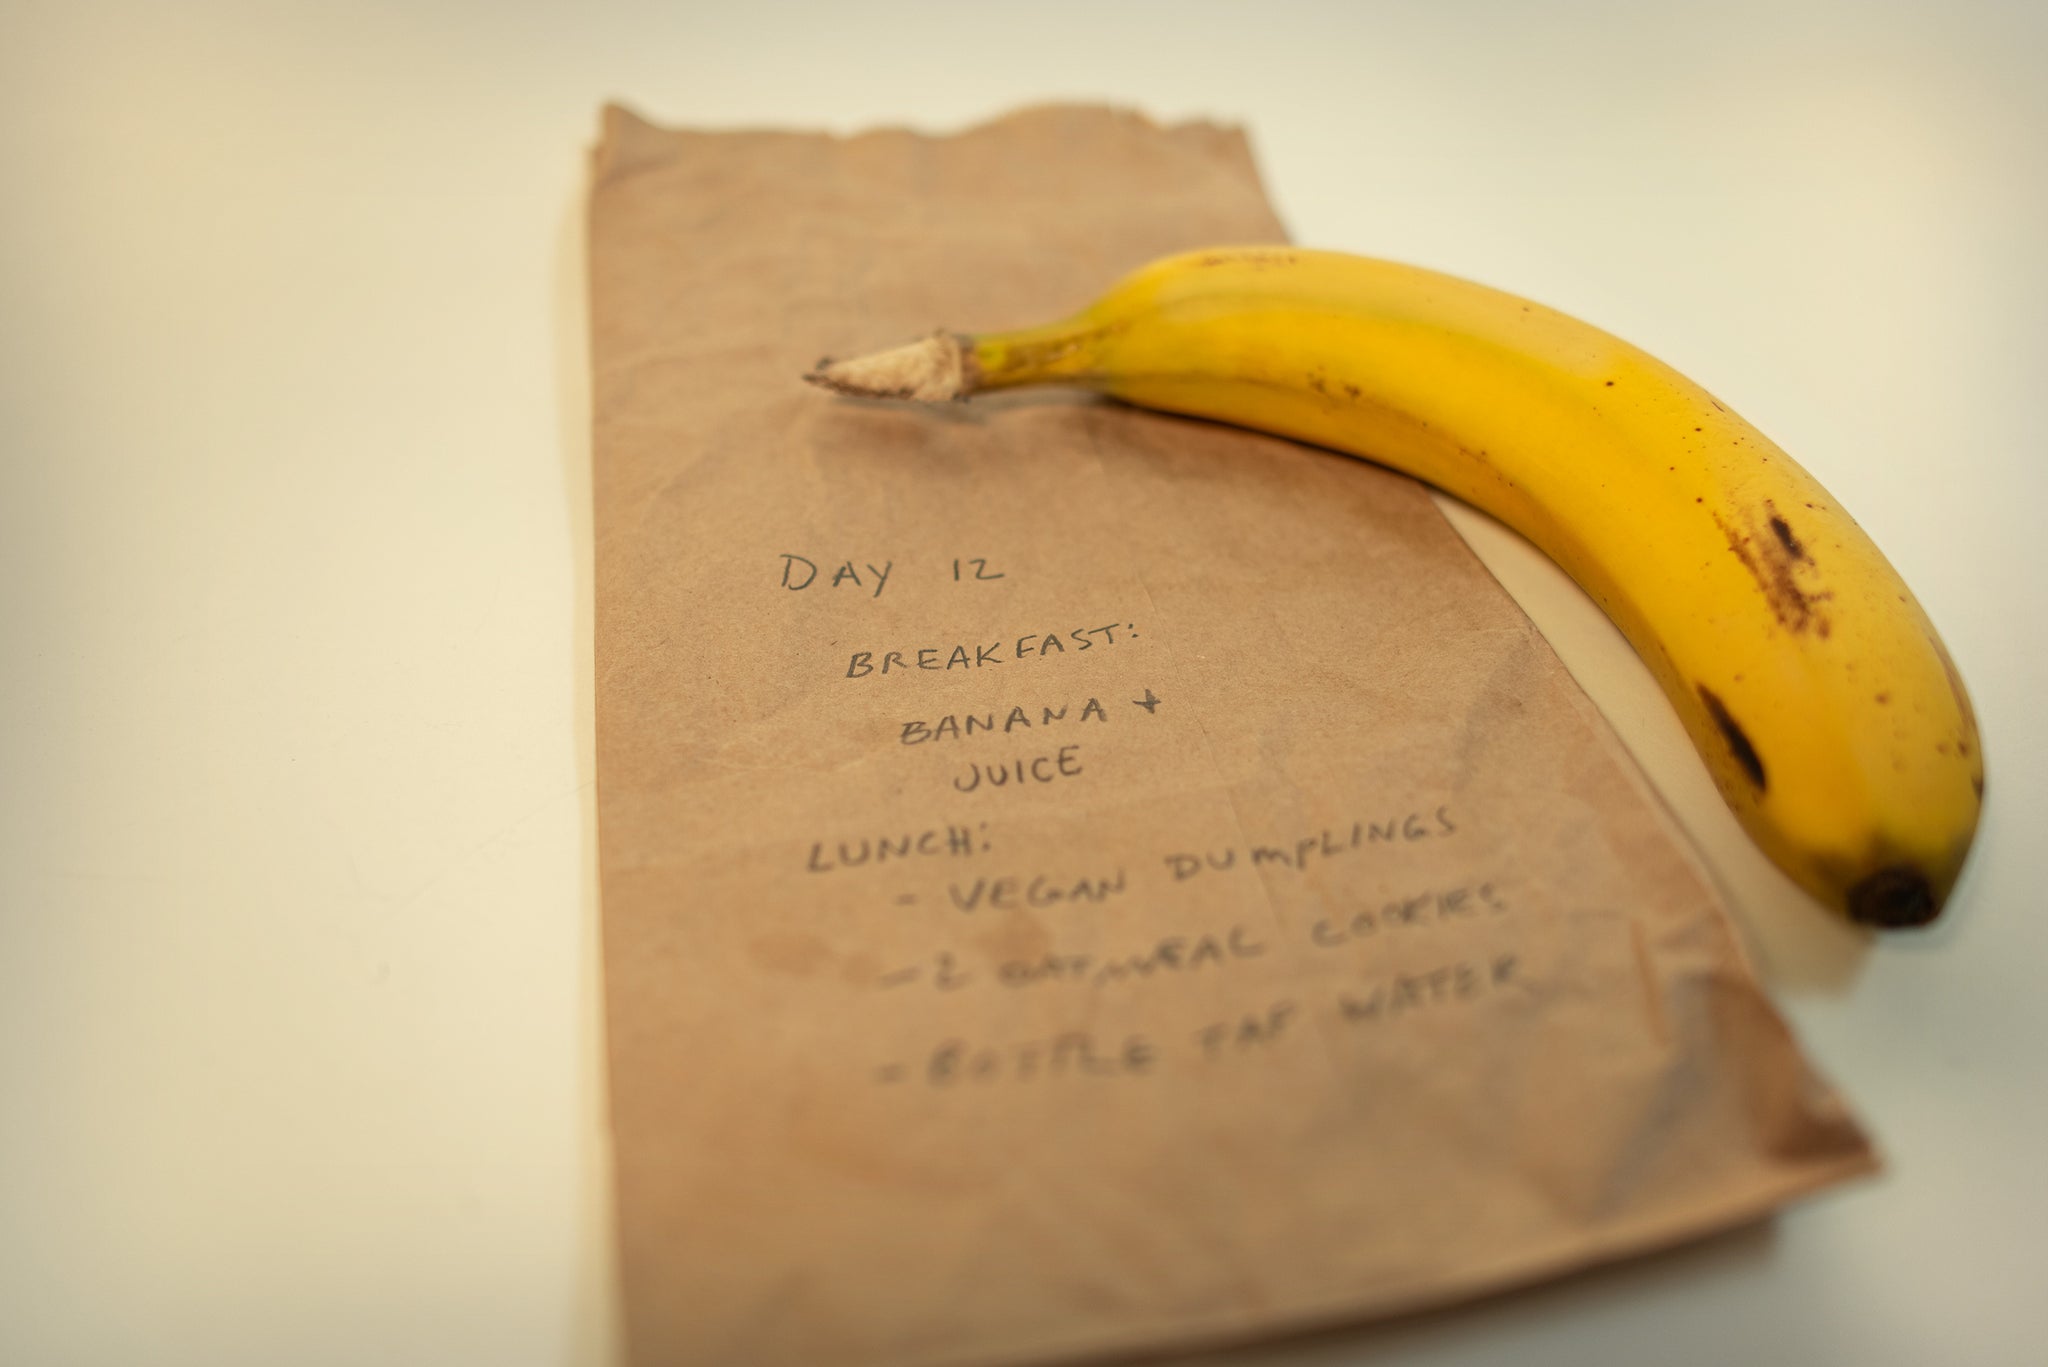 DAY 12
BREAKFAST:
BANANA +
JUICE
LUNCH:
- VEGAN DUMPLINGS
- 2 OATMEAL COOKIES
- BOTTLE TAP WATER